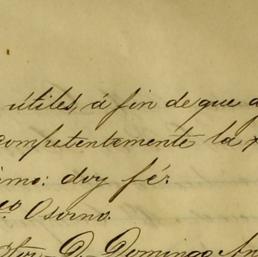 útiles, á fin de que
competentemente la
imo: doy fé.
co Osorno.
D. Domingo An